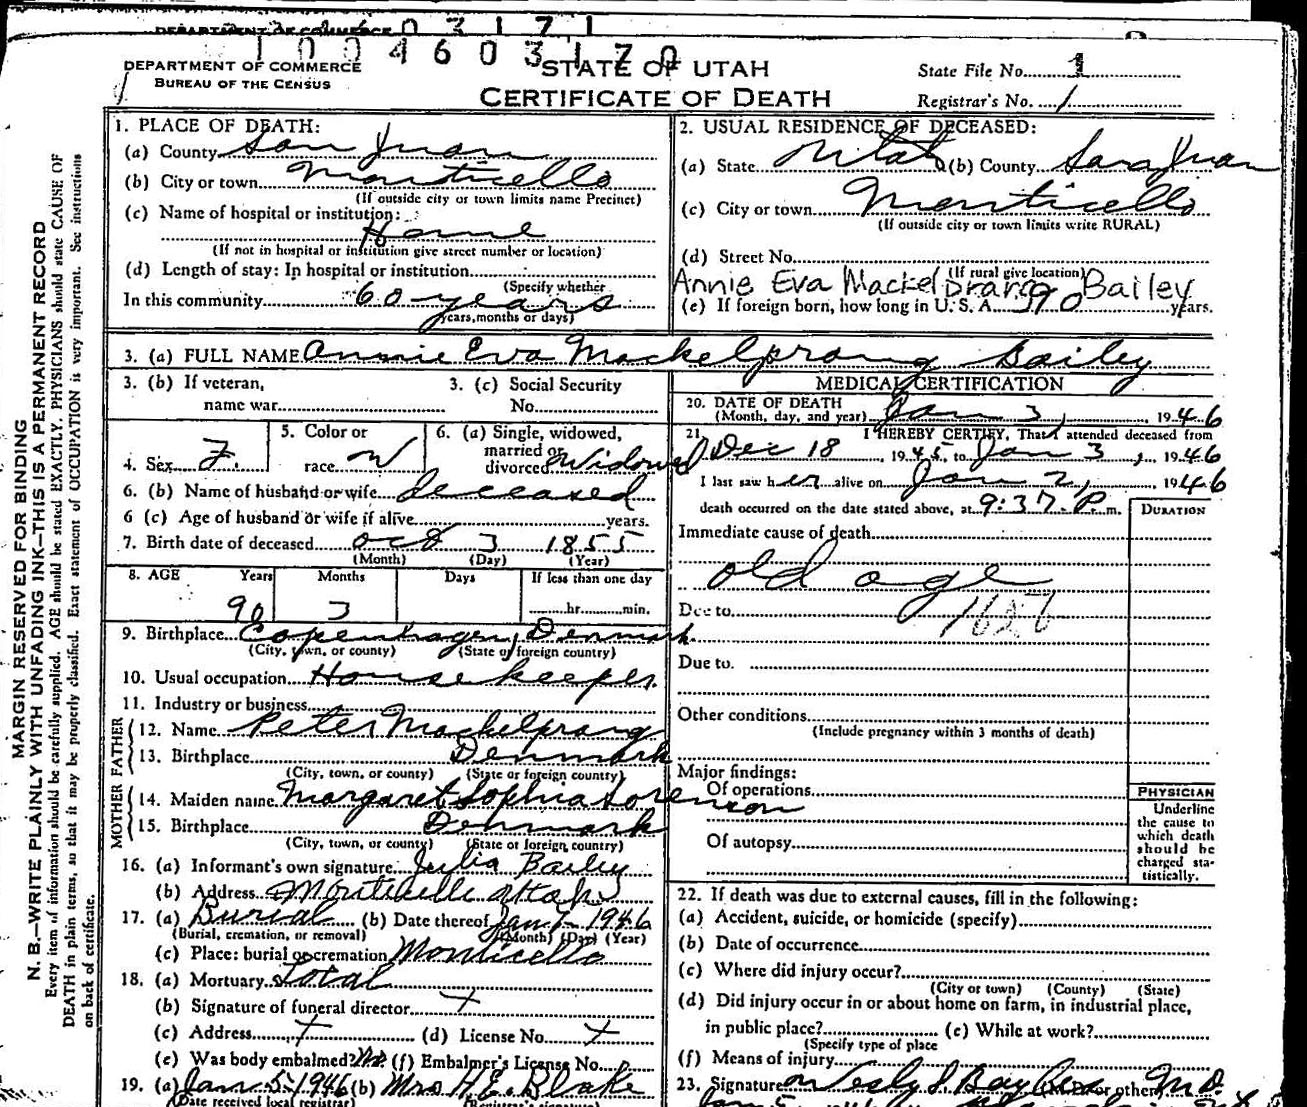 DEPARTMENT OF COMMERCE 0 3 1 7 1
1 0 0 4 6 0 3 1 7 0
DEPARTMENT OF COMMERCE
BUREAU OF THE CENSUS
STATE OF UTAH
CERTIFICATE OF DEATH
State File No. 1
Registrar's No. 1
MARGIN RESERVED FOR BINDING
N. B.—WRITE PLAINLY WITH UNFADING INK—THIS IS A PERMANENT RECORD
Every item of information should be carefully supplied. AGE should be stated EXACTLY. PHYSICIANS should state CAUSE OF
DEATH in plain terms, so that it may be properly classified. Exact statement of OCCUPATION is very important. See instructions
on back of certificate.
1. PLACE OF DEATH:
(a) County San Juan
(b) City or town Monticello
(If outside city or town limits name Precinct)
(c) Name of hospital or institution:
Home
(If not in hospital or institution give street number or location)
(d) Length of stay: In hospital or institution
(Specify whether
In this community 60 years
years, months or days)
2. USUAL RESIDENCE OF DECEASED:
(a) State Utah (b) County San Juan
(c) City or town Monticello
(If outside city or town limits write RURAL)
(d) Street No.
(If rural give location)
Annie Eva Mackelprang Bailey
(e) If foreign born, how long in U. S. A. 90 years.
3. (a) FULL NAME Annie Eva Mackelprang Bailey
3. (b) If veteran,
name war
3. (c) Social Security
No.
4. Sex F.
5. Color or
race W
6. (a) Single, widowed,
married or
divorced Widowed
6. (b) Name of husband or wife deceased
6 (c) Age of husband or wife if alive years.
7. Birth date of deceased Oct 3 1855
(Month) (Day) (Year)
8. AGE Years Months Days If less than one day
90 3 hr. min.
9. Birthplace Copenhagen, Denmark
(City, town, or county) (State or foreign country)
10. Usual occupation Housekeeper
11. Industry or business
FATHER
12. Name Peter Mackelprang
13. Birthplace Denmark
(City, town, or county) (State or foreign country)
MOTHER
14. Maiden name Margaret Sophia Sorenson
15. Birthplace Denmark
(City, town, or county) (State or foreign country)
16. (a) Informant's own signature Julia Bailey
(b) Address Monticello Utah
17. (a) Burial (b) Date thereof Jan 7 - 1946
(Burial, cremation, or removal) (Month) (Day) (Year)
(c) Place: burial or cremation Monticello
18. (a) Mortuary Local
(b) Signature of funeral director
(c) Address (d) License No.
(e) Was body embalmed? No. (f) Embalmer's License No.
19. (a) Jan 5-1946 (b) Mrs H. E. Blake
(Date received local registrar) (Registrar's signature)
MEDICAL CERTIFICATION
20. DATE OF DEATH
(Month, day, and year) Jan 3, 1946
21. I HEREBY CERTIFY, That I attended deceased from
Dec 18, 1945, to Jan 3, 1946
I last saw her alive on Jan 2, 1946
death occurred on the date stated above, at 9:37 P. m.
DURATION
Immediate cause of death
old age
Due to
Due to.
Other conditions
(Include pregnancy within 3 months of death)
Major findings:
Of operations
Of autopsy
PHYSICIAN
Underline
the cause to
which death
should be
charged sta-
tistically.
22. If death was due to external causes, fill in the following:
(a) Accident, suicide, or homicide (specify)
(b) Date of occurrence
(c) Where did injury occur?
(City or town) (County) (State)
(d) Did injury occur in or about home on farm, in industrial place,
in public place? (e) While at work?
(Specify type of place
(f) Means of injury
23. Signature (M.D. or other) M.D.